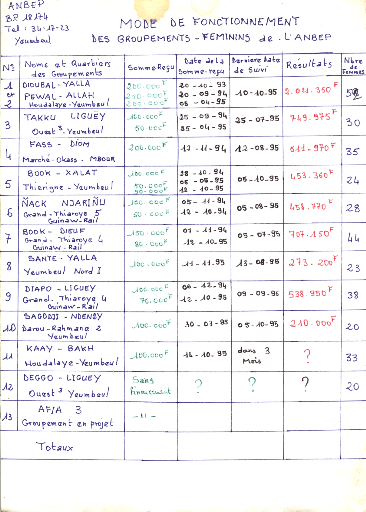 ANBEP
B.P. 18174
Tel : 34-17-23
Yeumbeul
MODE DE FONCTIONNEMENT
DES GROUPEMENTS-FEMININS de L'ANBEP
N° Noms et Quartiers des Groupements Somme Reçu Date de la Somme-reçu Derniere date de Suivi Résultats Nbre de FEMMES
1 DIOUBAL-YALLA 200.000F 20-10-93
et PEWAL-ALLAH 200.000F 20-09-94 10-10-95 2.021.350F
2 Houdalaye-Yeumbeul 200.000F 05-04-95
3 TAKKU LIGUEY 100.000F 25-09-94 25-07-95 749.975F 30
Ouest 3 Yeumbeul 50.000F 25-04-95
4 FASS - DIOM 200.000F 12-11-94 12-08-95 611.970F 35
Marché-Okass-MBOAR
5 BOOK - XALAT 100.000F 28-10-94 05-10-95 453.360F 24
Thierigne-Yeumbeul 50.000F 05-05-95
50.000F 12-10-95
6 ÑACK NJARIÑU 150.000F 05-11-94 05-08-95 458.770F 28
Grand-Thiaroye 5 50.000F 12-10-94
Guinaw-Rail
7 BOOK - DIEUF 150.000F 01-11-94 05-07-95 707.150F 44
Grand-Thiaroye 4 80.000F 12-10-95
Guinaw-Rail
8 SANTE-YALLA 100.000F 11-11-95 13-08-95 273.200F 23
Yeumbeul Nord I
9 DIAPO-LIGUEY 100.000F 06-12-94 09-09-95 538.950F 38
Grand. Thiaroye 4 70.000F 12-10-95
Guinaw-Rail
10 SAGODJI-NDENDY 100.000F 10-03-95 05-10-95 210.000F 20
Darou-Rahmane 2
Yeumbeul
11 KAAY - BAKH 100.000F 16-10-95 dans 3 Mois ? 33
Houdalaye-Yeumbeul
12 DEGGO-LIGUEY Sans financement ? ? ? 20
Ouest 3 Yeumbeul
13 AFIA 3 - 11 -
Groupement en projet
Totaux